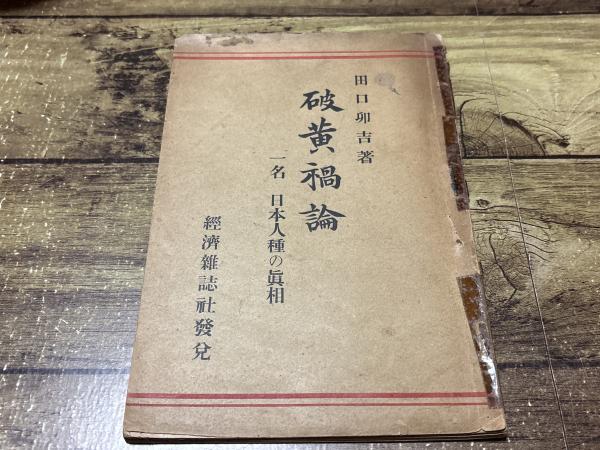 田口卯吉著
破黄禍論
一名 日本人種の眞相
經濟雜誌社發兌